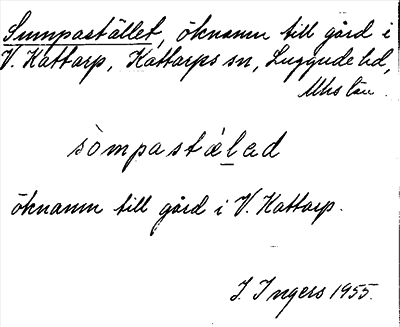 Sumpastället, öknamn till gård i
V. Kattarp, Kattarps sn, Luggude hd,
Mhs län.
sòmpastálEd
öknamn till gård i V. Kattarp.
I. Ingers 1955.